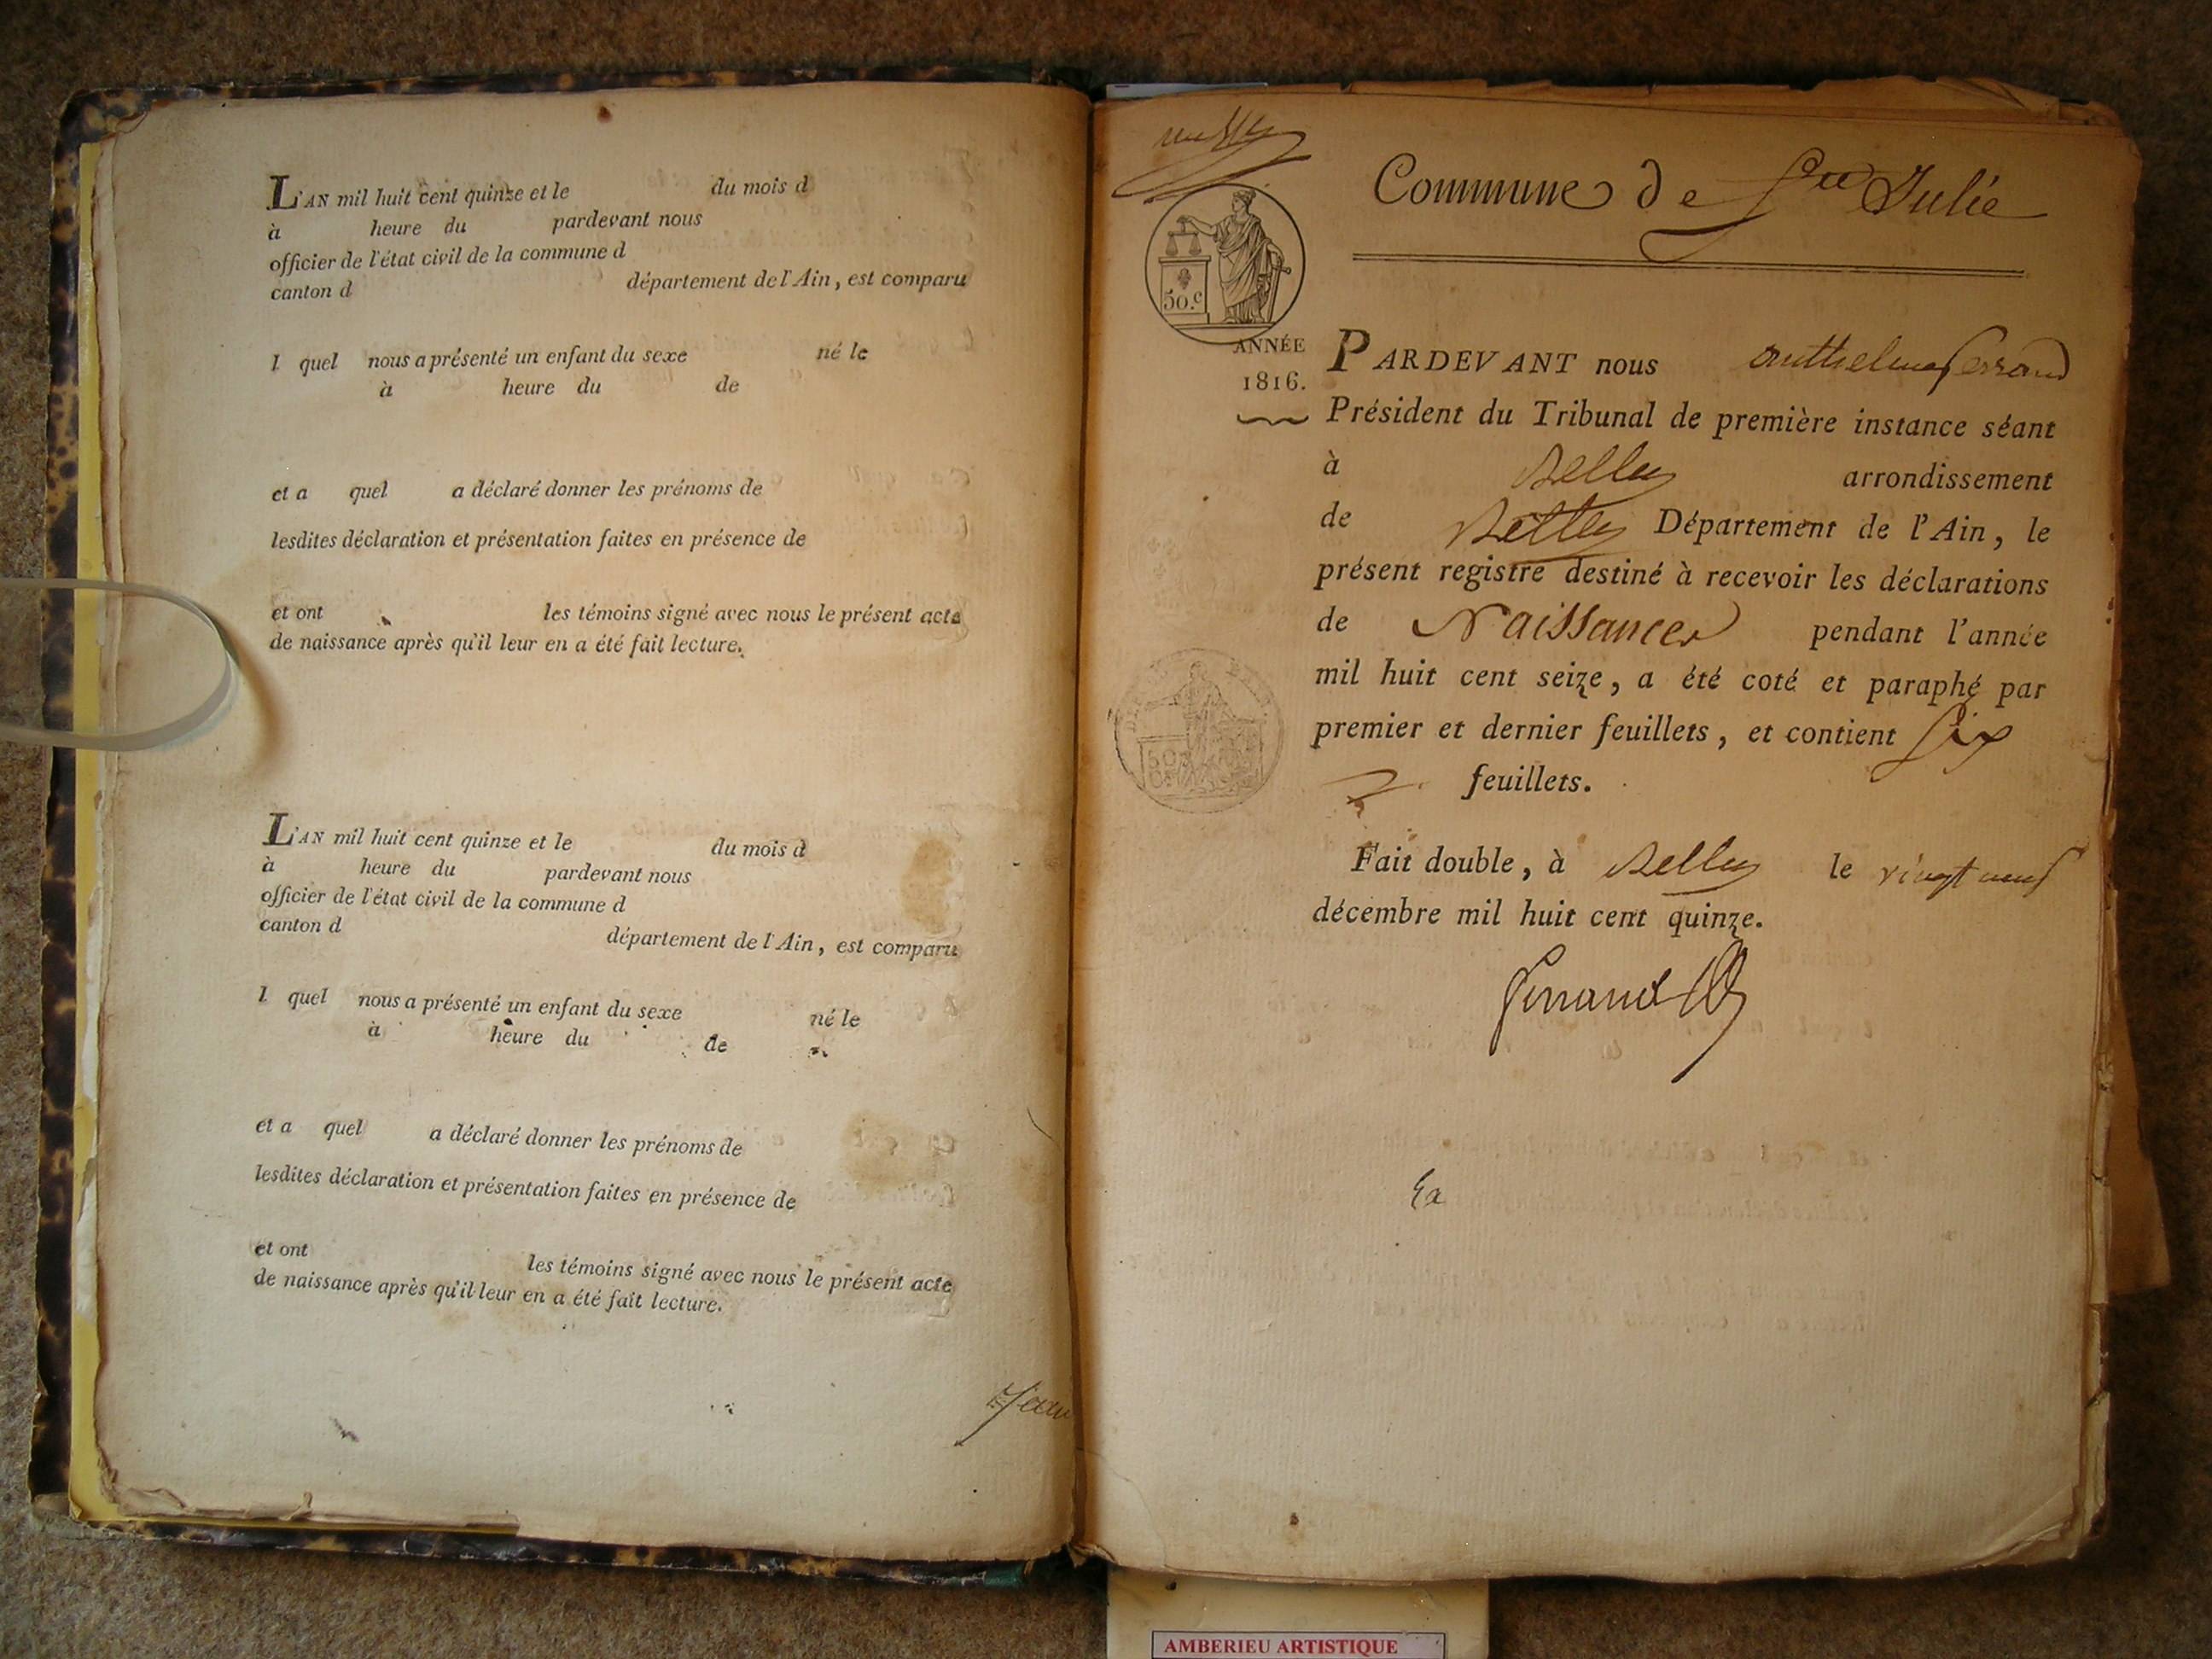 L'AN mil huit cent quinze et le du mois d
à heure du pardevant nous
officier de l'état civil de la commune d
canton d département de l'Ain, est comparu
l quel nous a présenté un enfant du sexe né le
à heure du de
et a quel a déclaré donner les prénoms de
lesdites déclaration et présentation faites en présence de
et ont les témoins signé avec nous le présent acte
de naissance après qu'il leur en a été fait lecture.
L'AN mil huit cent quinze et le du mois d
à heure du pardevant nous
officier de l'état civil de la commune d
canton d département de l'Ain, est comparu
l quel nous a présenté un enfant du sexe né le
à heure du de
et a quel a déclaré donner les prénoms de
lesdites déclaration et présentation faites en présence de
et ont les témoins signé avec nous le présent acte
de naissance après qu'il leur en a été fait lecture.
Commune de Ste Julie
50.c
ANNÉE
1816.
PARDEVANT nous Anthelme ferrand
Président du Tribunal de première instance séant
à Belley arrondissement
de Belley Département de l'Ain, le
présent registre destiné à recevoir les déclarations
de Naissances pendant l'année
mil huit cent seize, a été coté et paraphé par
premier et dernier feuillets, et contient six
feuillets.
Fait double, à Belley le vingt neuf
décembre mil huit cent quinze.
ferrand
AMBERIEU ARTISTIQUE